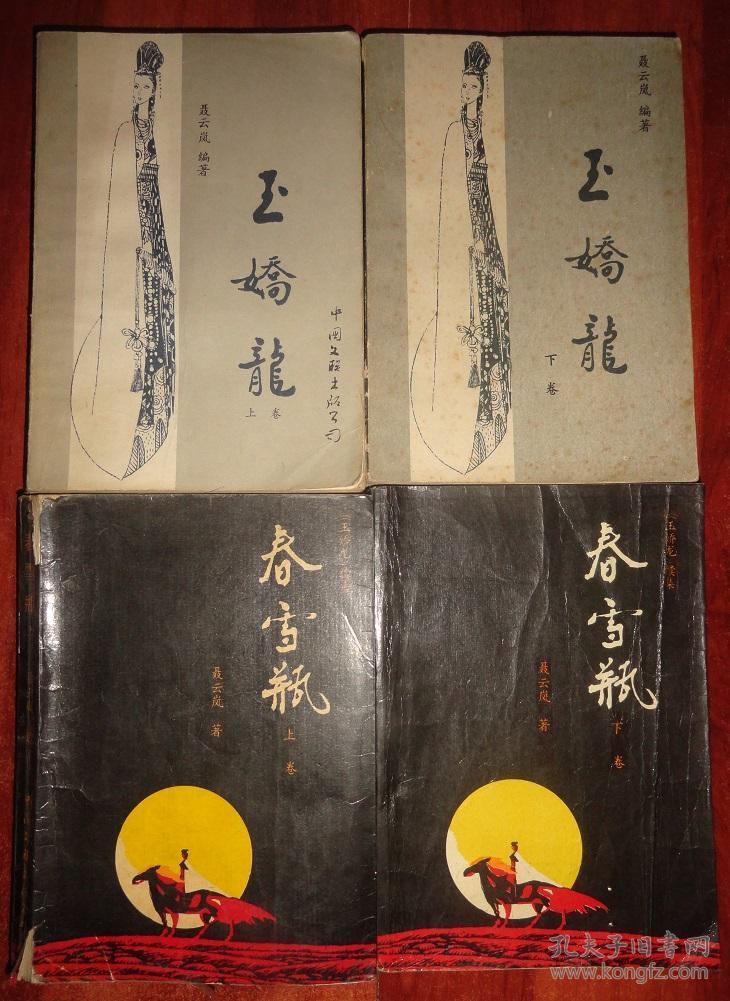 聂云岚 编著
玉嬌龍
上卷
中国文联出版公司
聂云岚 编著
玉嬌龍
下卷
春雪瓶
聂云岚 著
上卷
《玉娇龙》续集
春雪瓶
聂云岚 著
下卷
孔夫子旧书网
www.kongfz.com